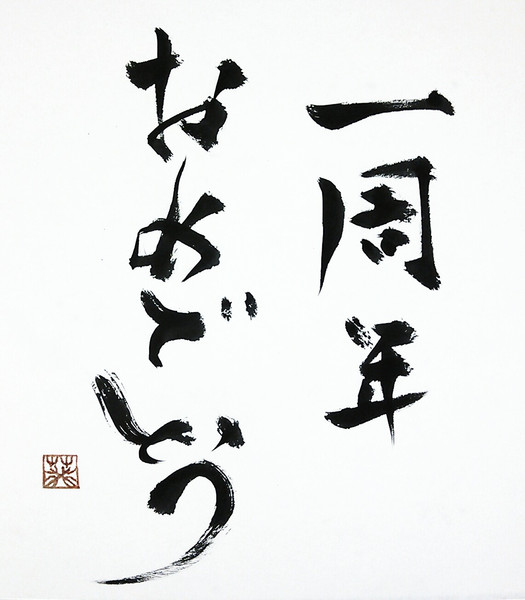 一周年
おめでとう